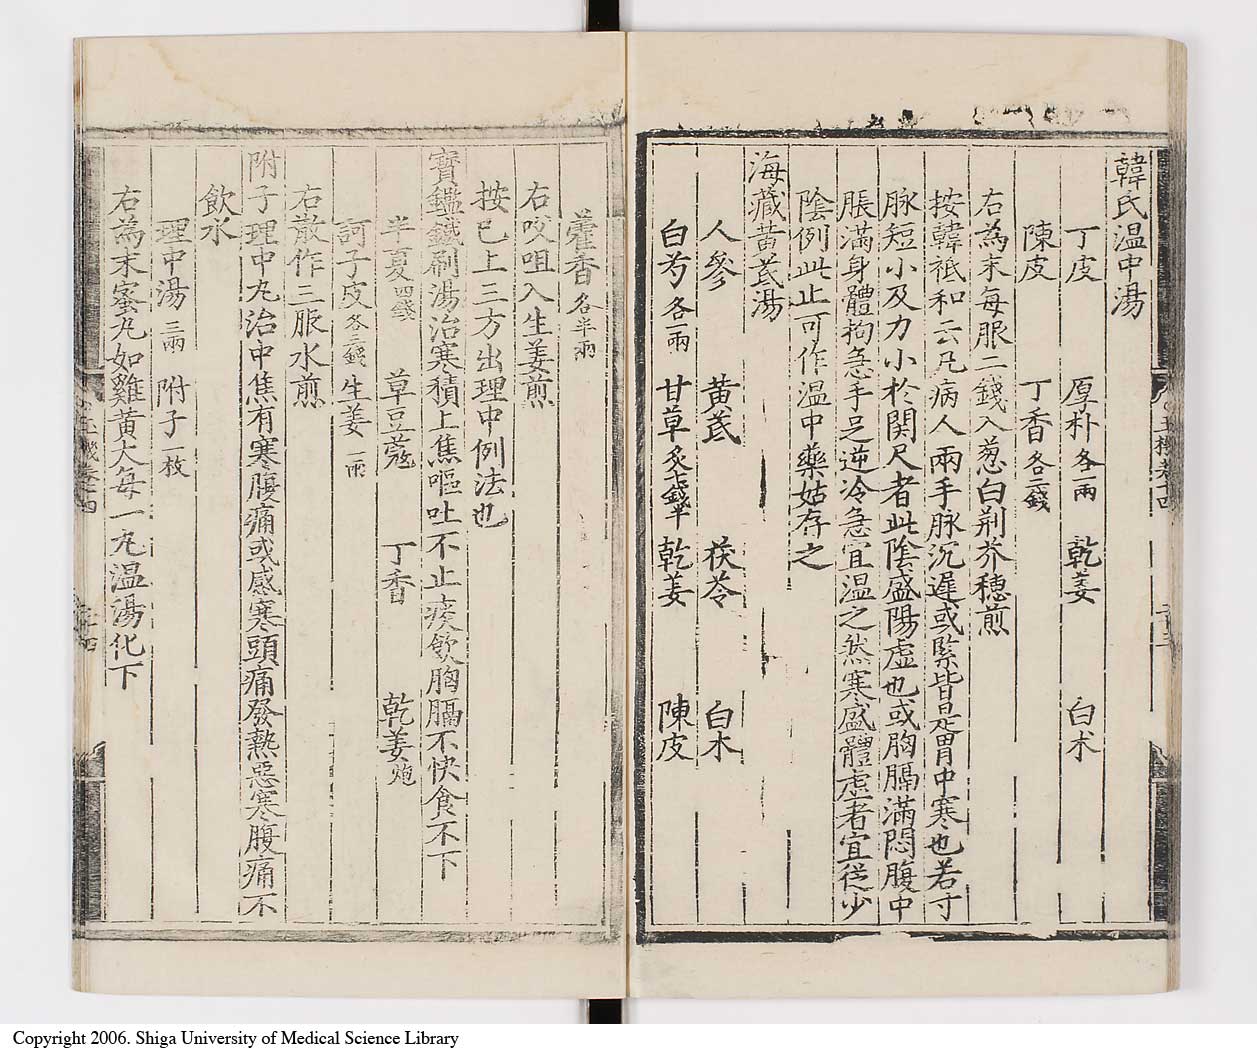 韓氏温中湯
丁皮 厚朴各一兩 乾姜 白术
陳皮 丁香各二錢
右為末每服二錢入葱白荆芥穗煎
按韓祗和云凡病人兩手脉沉遲或緊皆是胃中寒也若寸
脉短小及力小於関尺者此陰盛陽虚也或胸膈滿悶腹中
脹滿身體拘急手足逆冷急宜温之然寒盛體虚者宜從少
陰例此止可作温中藥姑存之
海藏黄芪湯
人參 黄芪 茯苓 白术
白芍各一兩 甘草炙 乾姜 陳皮
藿香各半兩
右㕮咀入生姜煎
按已上三方出理中例法也
寳鑑鐵刷湯治寒積上焦嘔吐不止痰飲胸膈不快食不下
半夏四錢 草豆蔻 丁香 乾姜炮
訶子皮各三錢 生姜一兩
右散作三服水煎
附子理中丸治中焦有寒腹痛或感寒頭痛發熱惡寒腹痛不
飲水
理中湯三兩 附子一枚
右為末蜜丸如雞黄大每一丸温湯化下
Copyright 2006. Shiga University of Medical Science Library